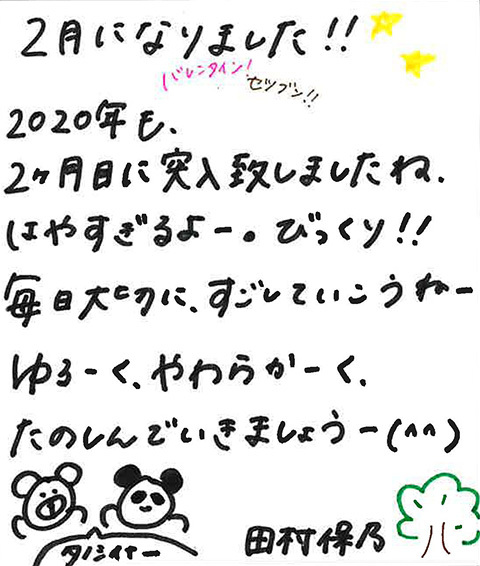 2月になりました!!
バレンタイン!
セツブン!!
2020年も、
2ヶ月目に突入致しましたね、
はやすぎるよー。びっくり!!
毎日大切に、すごしていこうねー
ゆるーく、やわらかーく、
たのしんでいきましょうー(^^)
タノシイナー
田村保乃